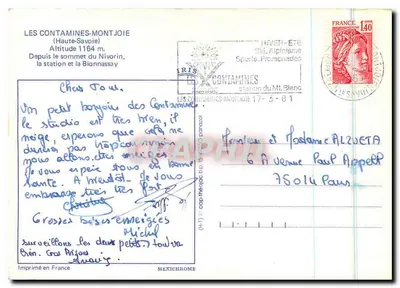 LES CONTAMINES-MONTJOIE
(Haute-Savoie)
Altitude 1164 m.
Depuis le sommet du Nivorin,
la station et la Bionnassay
Chers Tous.
Un petit bonjour des Contamines
le studio est très bien, il
neige, espérons que cela ne
durera pas trop
nous allons
Je vous espère tous en bonne
santé. A bientôt. Je vous
embrasse très très fort
Grosses bises enneigées
Michel
surveillons les deux petits. tout va
bien. Gros Bisous
Imprimé en France
MEXICHROME
HIVER-ÉTÉ
Ski, Alpinisme
Sports, Promenades
CONTAMINES
station du Mt. Blanc
17-3-81
FRANCE
1,40
Monsieur et Madame ALZUETA
6 Avenue Paul Appell
75014 Paris